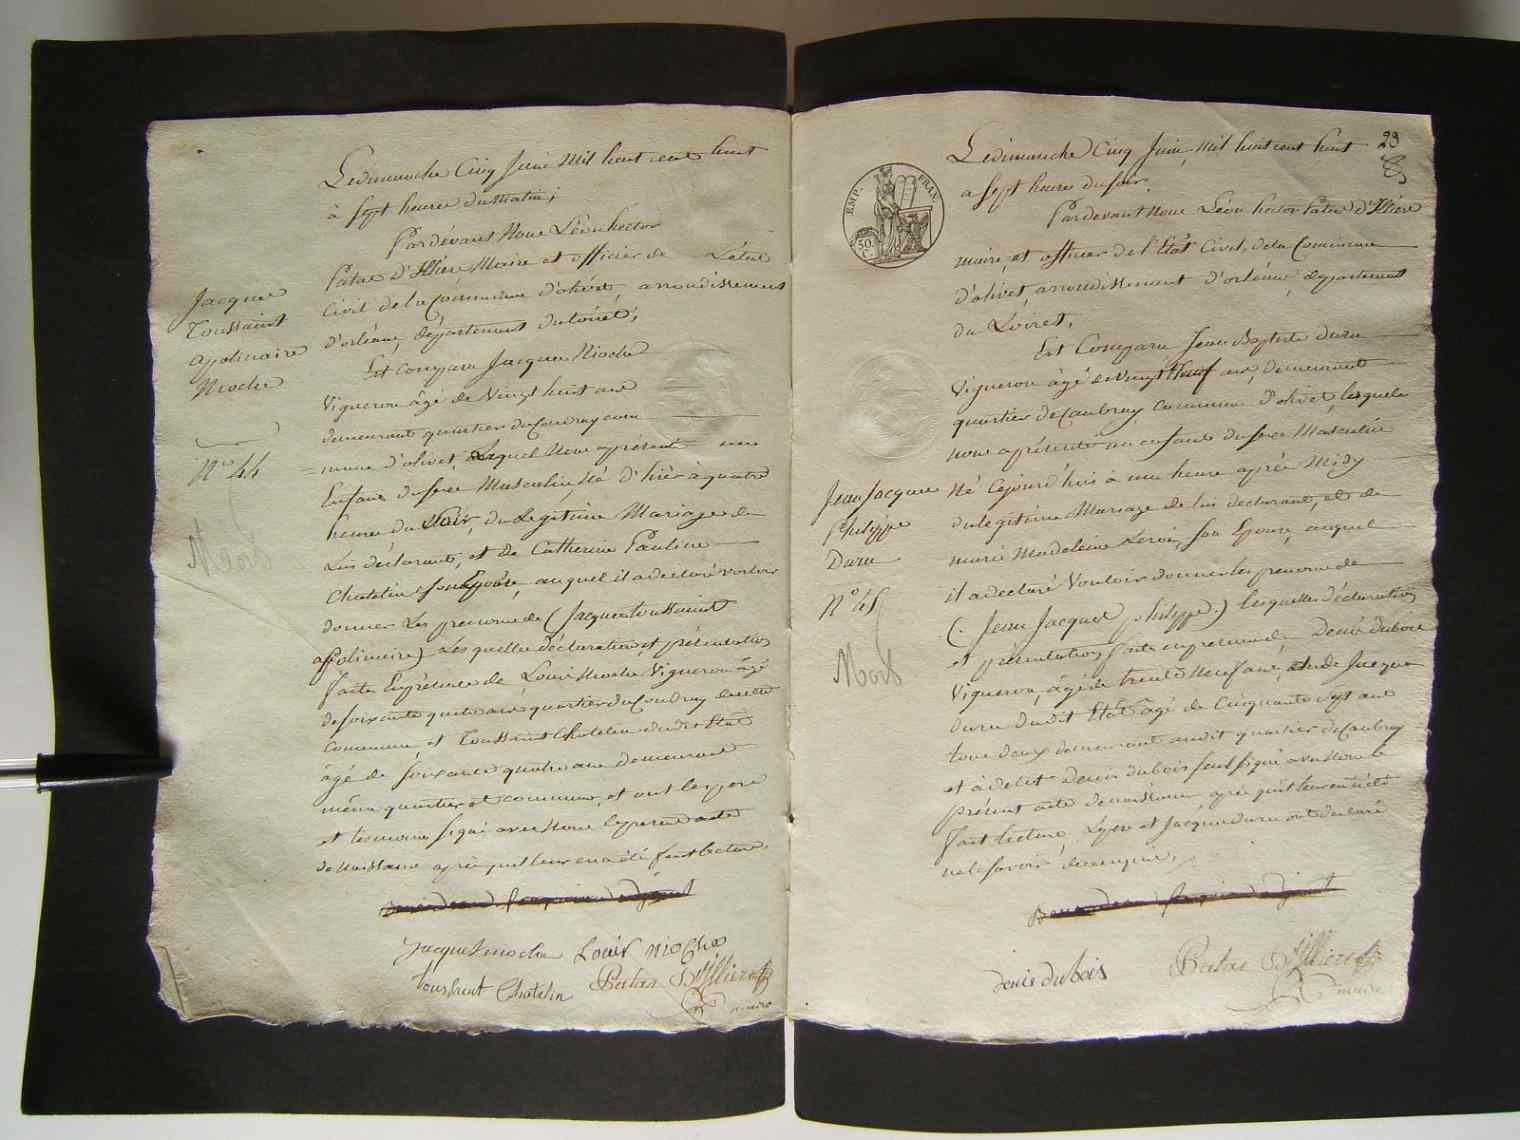 Le dimanche Cinq Juin Mil huit cent huit
à Sept heures du Matin;
Pardevant Nous Léon hector
Patas D'Illiers Maire et officier de L'état
Civil de la Commune d'olivet, arrondissement
d'orléans, département du Loiret;
Jacques
Toussaint
Appolinaire
Nioche
N.º 44
Mort
Est Comparu Jacques Nioche
Vigneron âgé de Vingt huit ans
demeurant quartier du Coudray com
= mune d'olivet, Lequel Nous a présenté un
Enfant du sexe Masculin, Né d'hier à quatre
heures du Soir, du Legitime Mariage de
Lui déclarant, et de Catherine Pauline
Chatelin son Epouse, auquel il a declaré vouloir
donner Les prenoms de (Jacques toussaint
appolinaire) Les quelles déclaration et présentation
faites En présence de Louis Nioche, Vigneron âgé
de soixante quatre ans quartier du Coudray
commune, et Toussaint Chatelin dudit Etat
âgé de soixante quatre ans demeurant
même quartier et commune, et ont les père
et temoins signé avec Nous le present acte
de Naissance après que leur en a été fait lecture.
Jacques nioche Louis nioche
toussaint Chatelin Patas D'Illiers
maire
29
EMP. FRAN.
50.
C.
Le dimanche Cinq Juin, Mil huit cent huit
a sept heures du soir.
Pardevant Nous Léon hector Patas D'Illiers
maire, et officier de l'Etat Civil, de la Commune
d'olivet, arrondissement d'orléans, departement
du Loiret,
Est Comparu Jean Baptiste Duru
Vigneron âgé de vingt Neuf ans, demeurant
quartier de Caubray commune d'olivet, lequel
nous a présenté un enfant du sexe Masculin
Jean Jacques
Philippe
Duru
N.º 45
Mort
Né Cejourd'hui à une heure après Midy
du legitime Mariage de lui declarant, et de
marie Madeleine Leroi, son Epouse, auquel
il a declaré Vouloir donner les prenoms de
(Jean Jacques philippe.) lesquelles déclaration
et présentation faites en presence de Denis dubois
Vigneron, âgé de trente Neuf ans, et de Jacques
duru dudit Etat âgé de Cinquante sept ans
tous deux demeurant audit quartier de Caubray
et à ledit Denis dubois seul signé avec Nous le
présent acte de naissance, après qu'il leur en a été
fait lecture, Le père et Jacques duru ont declaré
ne le savoir de ce enquis.
denis dubois Patas D'Illiers
maire